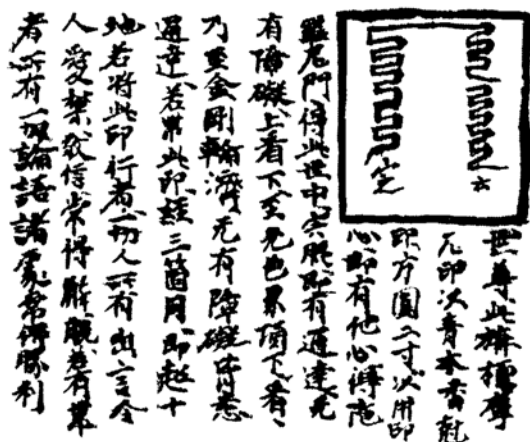 世尊此療
印次青木香剋
印方圓二寸以用印
心即有他心
門得此世中宍眼即有通達无
有障礙上看下至无色界頂下看
乃至金剛輪濟无有障礙皆悉
通達若帶此印經三箇月即超十
地若將此印行者一切人所有出言令
人受禁敬信常得解脫若有
者所有一切論語諸處常得勝利